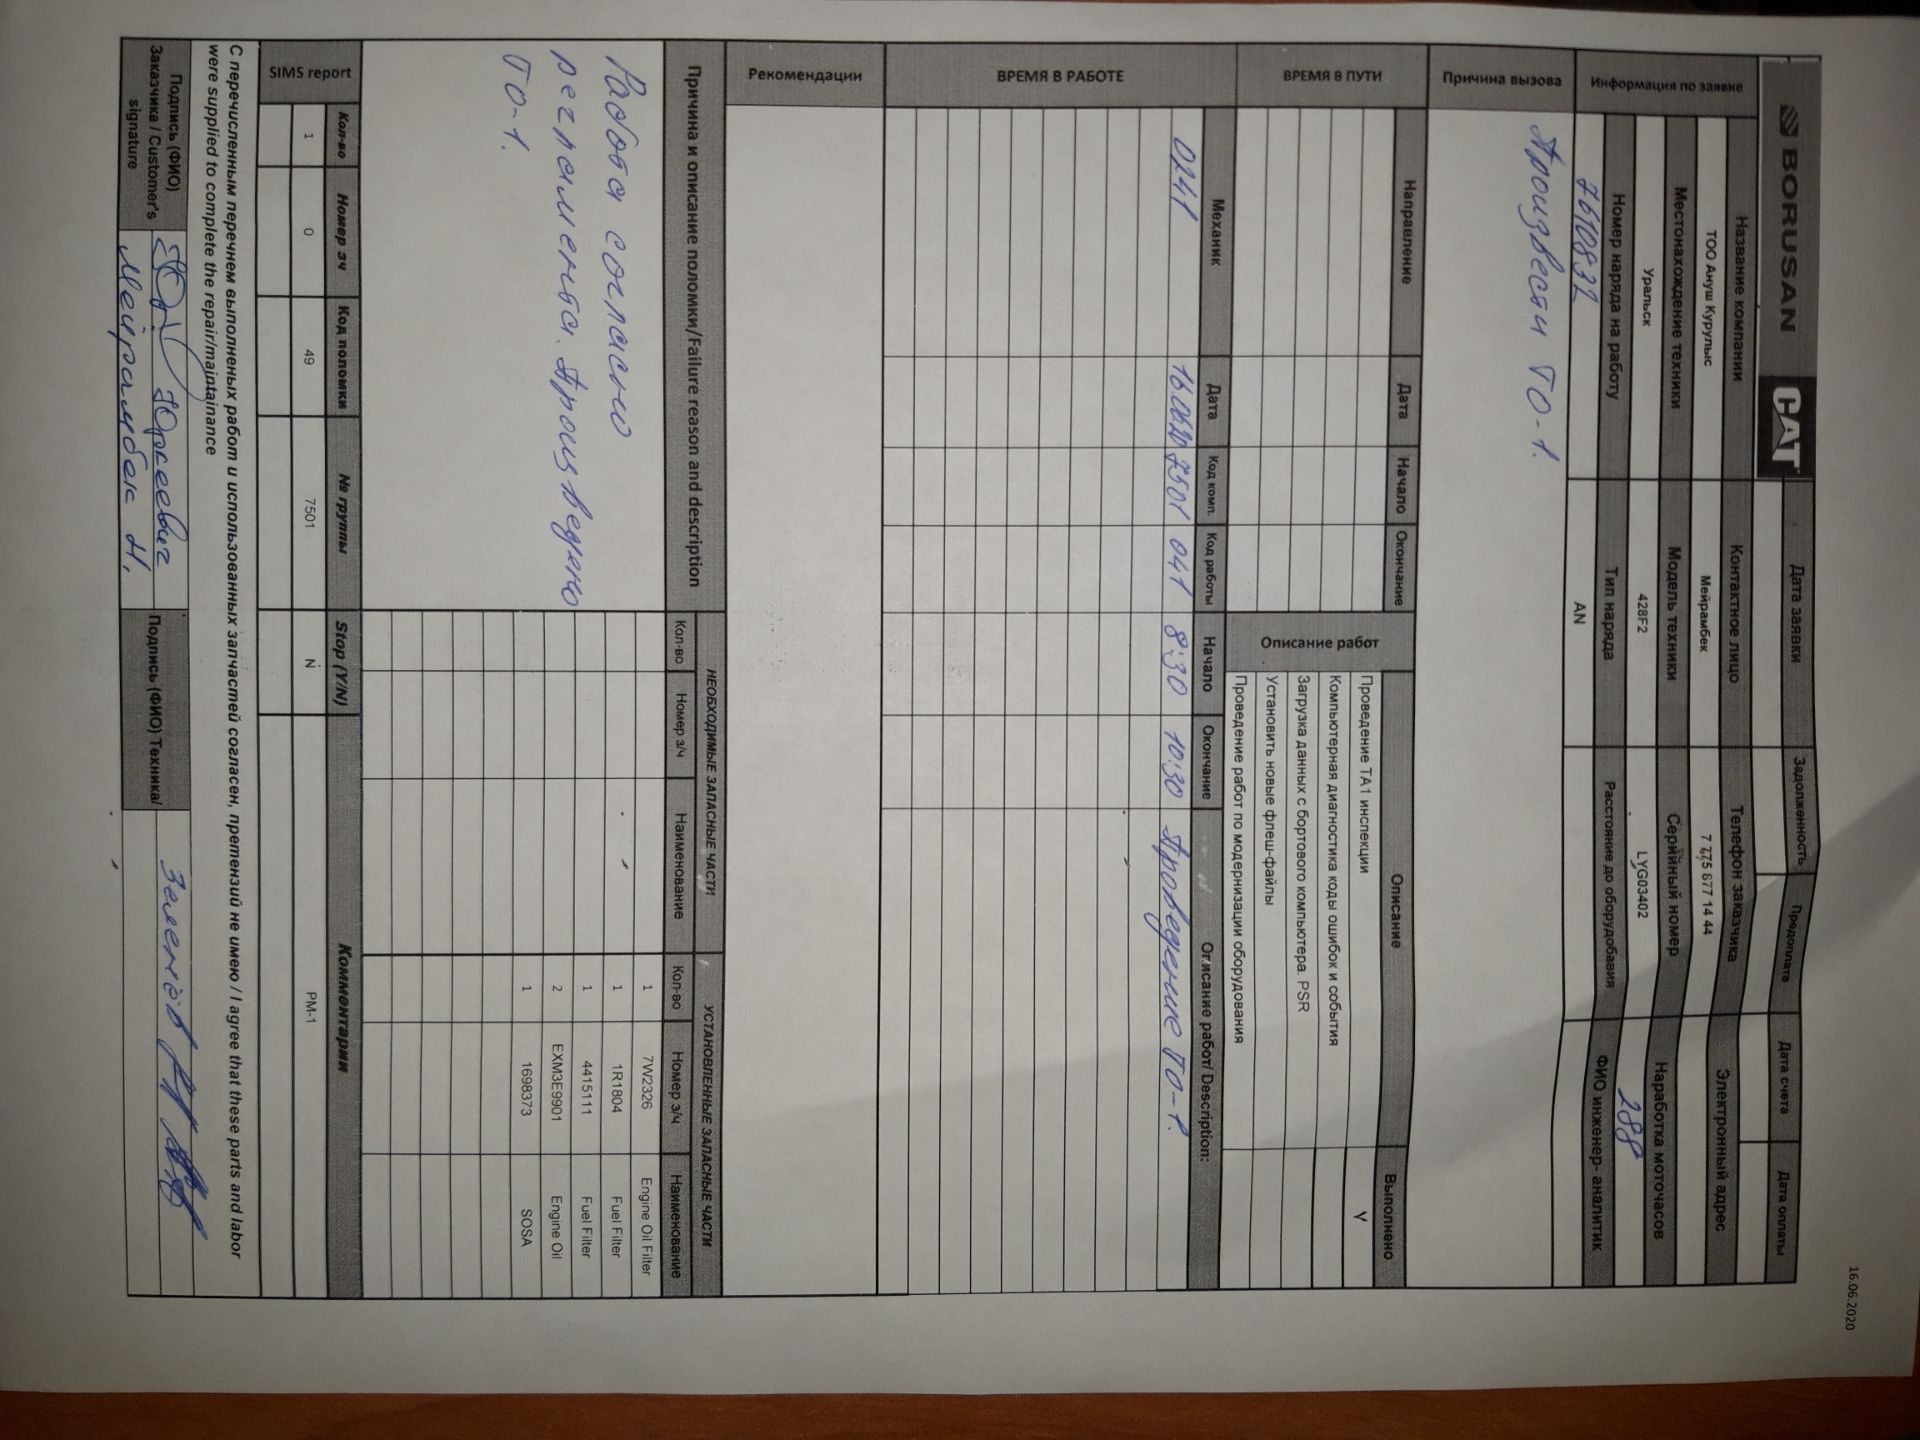 16.06.2020
BORUSAN CAT
Дата заявки Задолженность Предоплата Дата счета Дата оплаты
Информация по заявке
Название компании Контактное лицо Телефон заказчика Электронный адрес
ТОО Ануш Курулыс Мейрамбек 7 775 677 14 44
Местонахождение техники Модель техники Серийный номер Наработка моточасов
Уральск 428F2 LYG03402 288
Номер наряда на работу Тип наряда Расстояние до оборудобавия ФИО инженер- аналитик
7610832 AN
Причина вызова
Произвести ТО-1.
ВРЕМЯ В ПУТИ
Направление Дата Начало Окончание
Описание работ
Описание Выполнено
Проведение ТА1 инспекции Y
Компьютерная диагностика коды ошибок и события
Загрузка данных с бортового компьютера. PSR
Установить новые флеш-файлы
Проведение работ по модернизации оборудования
ВРЕМЯ В РАБОТЕ
Механик Дата Код комп. Код работы Начало Окончание Описание работ/ Description:
0241 16.06.20 7501 041 8:30 10:30 Проведение ТО-1.
Рекомендации
Причина и описание поломки/Failure reason and description
НЕОБХОДИМЫЕ ЗАПАСНЫЕ ЧАСТИ УСТАНОВЛЕННЫЕ ЗАПАСНЫЕ ЧАСТИ
Кол-во Номер з/ч Наименование Кол-во Номер з/ч Наименование
Работа согласно
регламента. Произведено
ТО-1.
1 7W2326 Engine Oil Filter
1 1R1804 Fuel Filter
1 4415111 Fuel Filter
2 EXM3E9901 Engine Oil
1 1698373 SOSA
SIMS report
Кол-во Номер зч Код поломки № группы Stop (Y/N) Комментарии
1 0 49 7501 N PM-1
С перечисленным перечнем выполненых работ и использованных запчастей согласен, претензий не имею / I agree that these parts and labor
were supplied to complete the repair/maintainance
Подпись (ФИО) Заказчика / Customer's signature
Мейрамбек Н.
Подпись (ФИО) Техника/